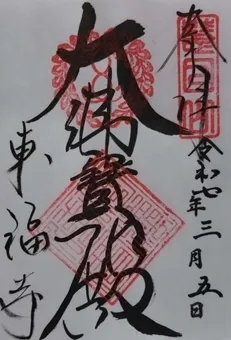 奉拝
令和七年三月五日
大佛寶殿
東福寺